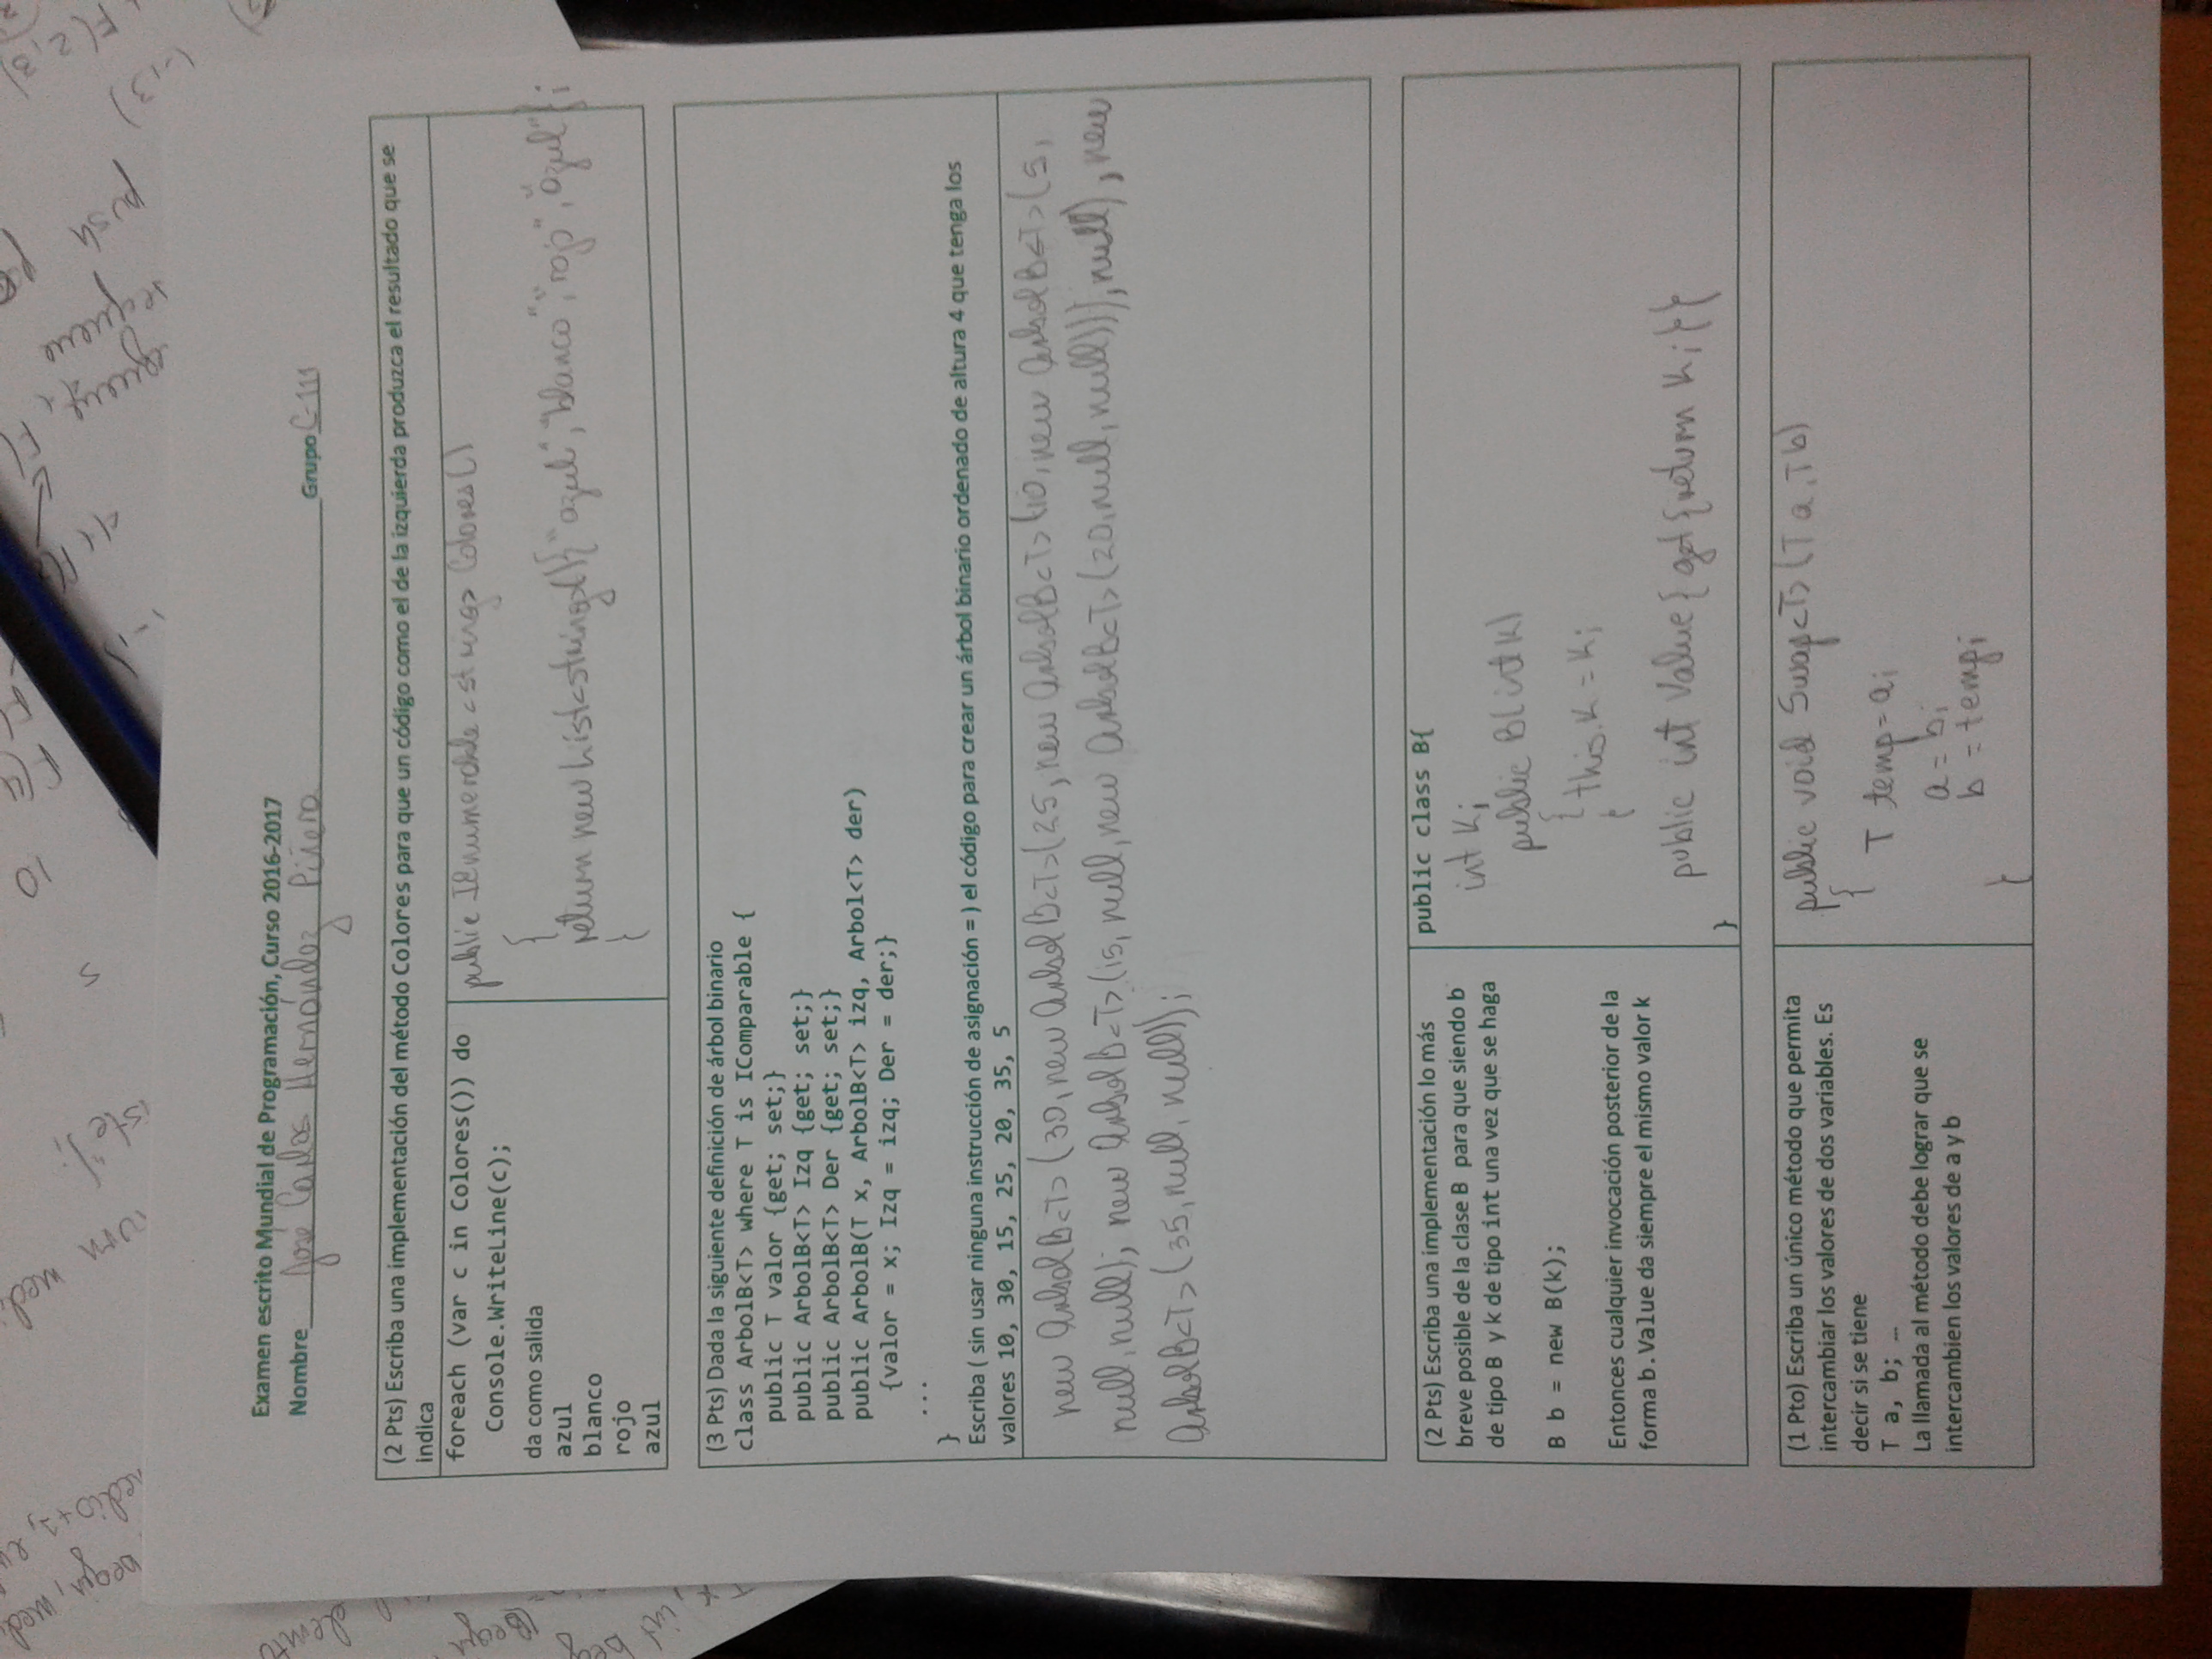 Examen escrito Mundial de Programación, Curso 2016-2017
Nombre José Carlos Hernández Piñero Grupo C-111
(2 Pts) Escriba una implementación del método Colores para que un código como el de la izquierda produzca el resultado que se
indica
foreach (var c in Colores()) do
Console.WriteLine(c);
da como salida
azul
blanco
rojo
azul
public IEnumerable<string> Colores()
{
return new List<string>(){"azul","blanco","rojo","azul"};
}
(3 Pts) Dada la siguiente definición de árbol binario
class ArbolB<T> where T is IComparable {
public T valor {get; set;}
public ArbolB<T> Izq {get; set;}
public ArbolB<T> Der {get; set;}
public ArbolB(T x, ArbolB<T> izq, Arbol<T> der)
{valor = x; Izq = izq; Der = der;}
...
}
Escriba ( sin usar ninguna instrucción de asignación = ) el código para crear un árbol binario ordenado de altura 4 que tenga los
valores 10, 30, 15, 25, 20, 35, 5
new ArbolB<T>(30, new ArbolB<T>(25, new ArbolB<T>(10, new ArbolB<T>(5,
null, null); new ArbolB<T>(15, null, new ArbolB<T>(20, null, null))), null), new
ArbolB<T>(35, null, null));
(2 Pts) Escriba una implementación lo más
breve posible de la clase B para que siendo b
de tipo B y k de tipo int una vez que se haga
B b = new B(k);
Entonces cualquier invocación posterior de la
forma b.Value da siempre el mismo valor k
public class B{
int K;
public B(int K)
{
this.K = K;
}
public int Value{ get {return K;}}
}
(1 Pto) Escriba un único método que permita
intercambiar los valores de dos variables. Es
decir si se tiene
T a, b; …
La llamada al método debe lograr que se
intercambien los valores de a y b
public void Swap<T>(T a, T b)
{
T temp = a;
a = b;
b = temp;
}